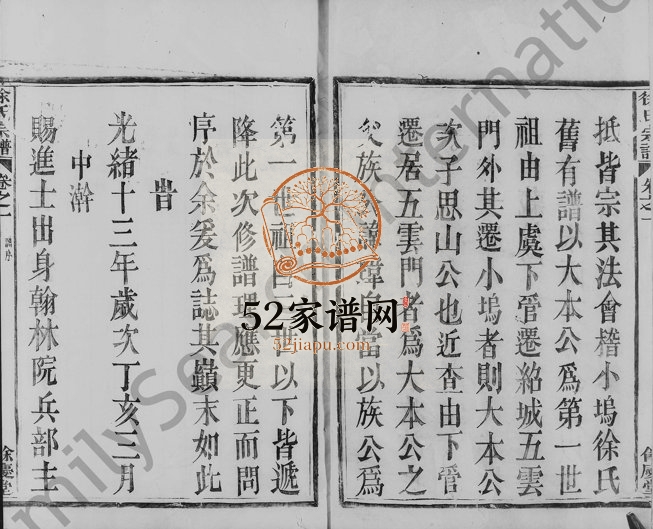 抵皆宗其法會稽小塢徐氏
舊有譜以大本公爲第一世
祖由上虞下管遷紹城五雲
門外其遷小塢者則大本公
次子思山公也近查由下管
遷居五雲門者爲大本公之
族 當以族公爲
第一世祖 世以下皆遞
降此次修譜理應更正而問
序於余爰爲誌其巔末如此
旹
光緒十三年歲次丁亥三月
中澣
賜進士出身翰林院兵部主
徐氏宗譜
卷之一
譜序
餘慶堂
徐氏宗譜
卷之一
餘慶堂
52家谱网
52jiapu.com